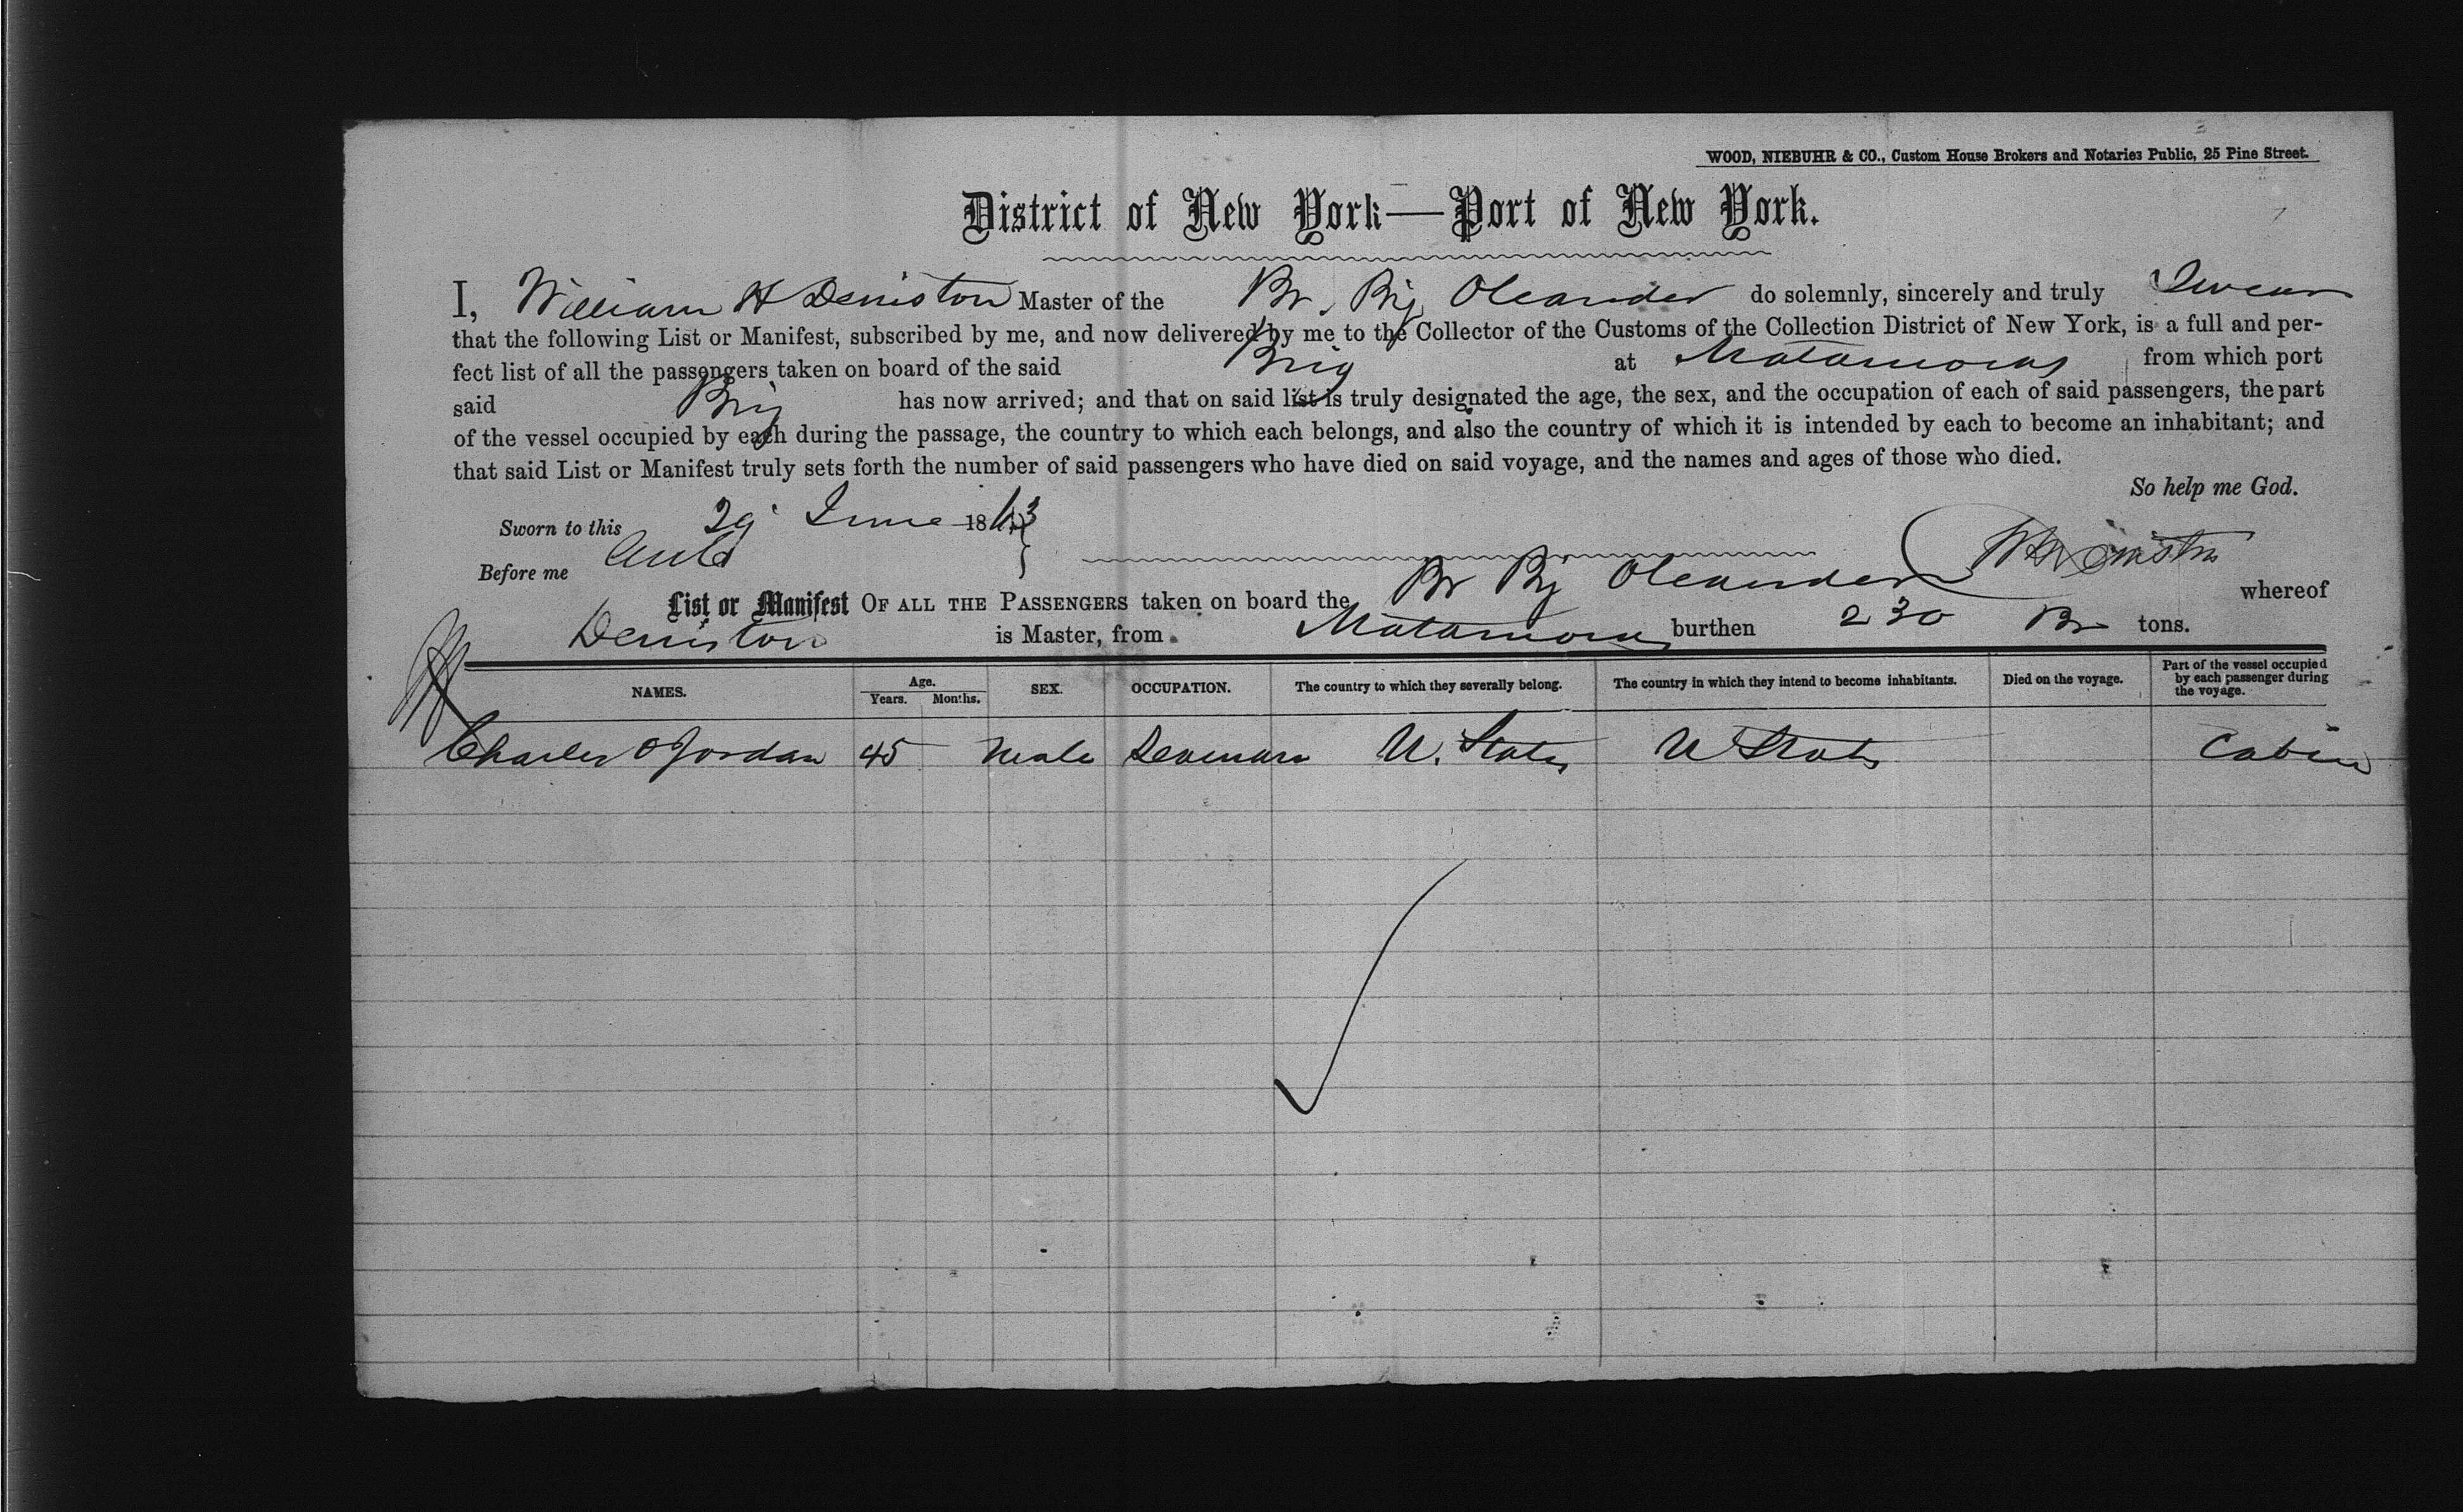 WOOD, NIEBUHR & CO., Custom House Brokers and Notaries Public, 25 Pine Street.
District of New York—Port of New York.
I, William H Deniston Master of the Br. Brig Oleander do solemnly, sincerely and truly Swear
that the following List or Manifest, subscribed by me, and now delivered by me to the Collector of the Customs of the Collection District of New York, is a full and per-
fect list of all the passengers taken on board of the said Brig at Matamoras from which port
said Brig has now arrived; and that on said list is truly designated the age, the sex, and the occupation of each of said passengers, the part
of the vessel occupied by each during the passage, the country to which each belongs, and also the country of which it is intended by each to become an inhabitant; and
that said List or Manifest truly sets forth the number of said passengers who have died on said voyage, and the names and ages of those who died.
So help me God.
Sworn to this 29 June 1863
Before me
W H Deniston
List or Manifest OF ALL THE PASSENGERS taken on board the Br Brig Oleander whereof
Deniston is Master, from Matamoras burthen 230 Br tons.
NAMES. Age. Years. Months. SEX. OCCUPATION. The country to which they severally belong. The country in which they intend to become inhabitants. Died on the voyage. Part of the vessel occupied by each passenger during the voyage.
Charles O Jordan 45 Male Seaman U. States U States Cabin